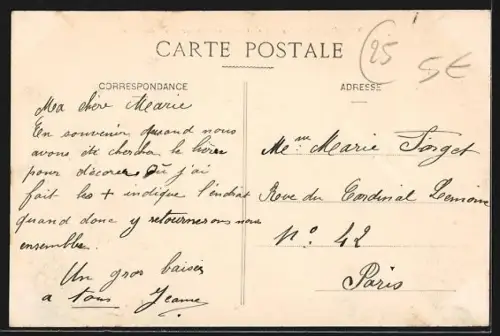 CARTE POSTALE
25
5€
CORRESPONDANCE
ADRESSE
Ma chère Marie
En souvenir quand nous
avons été chercher le lierre
pour décorer où j'ai
fait les + indique l'endroit
quand donc y retournerons nous
ensemble.
Un gros baiser
a tous Jeanne
Melle Marie Forget
Rue du Cardinal Lemoine
No 42
Paris